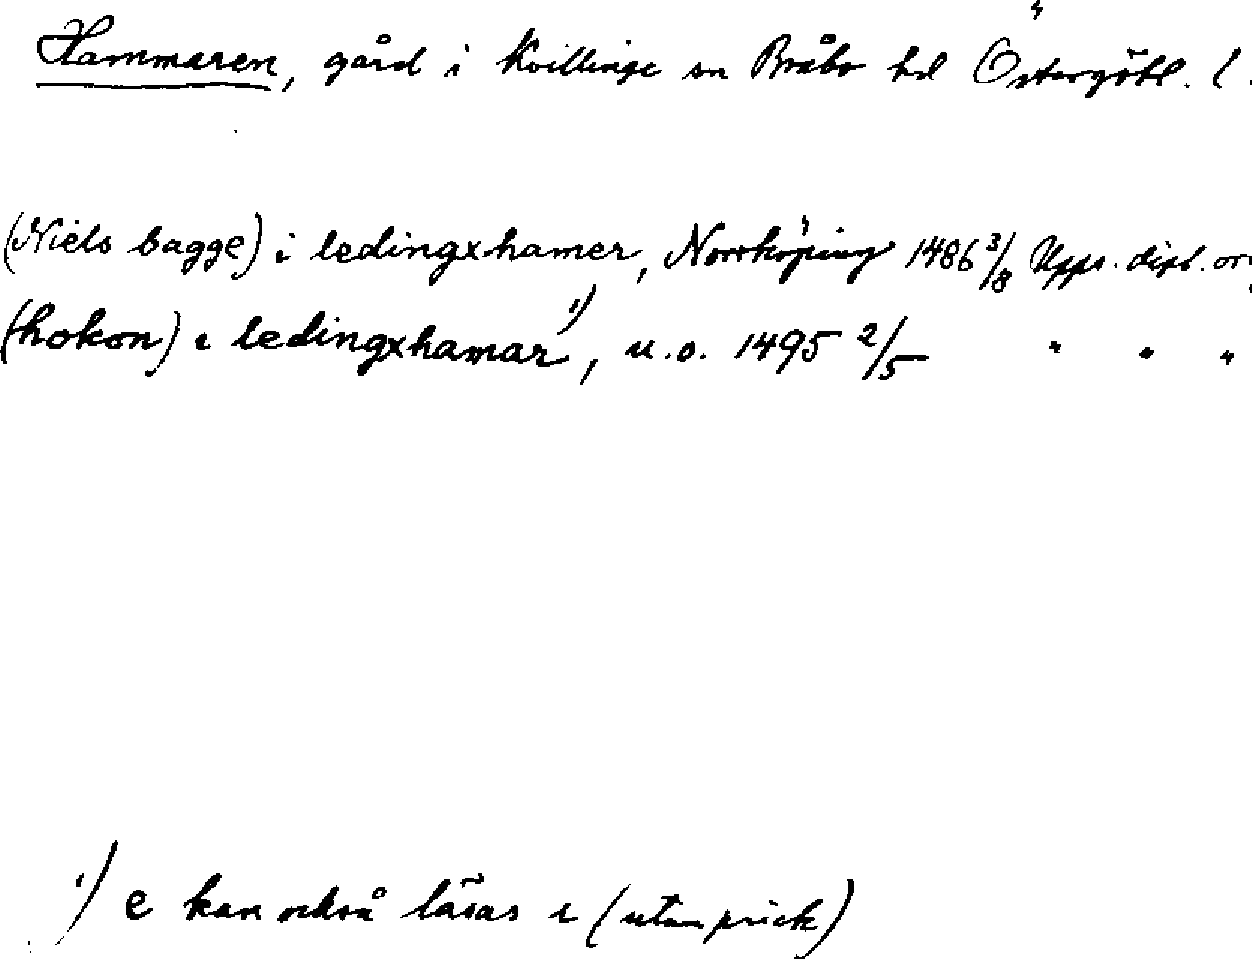 Hammaren, gård i Kvillinge sn Bråbo hd Östergötl. l.
(Niels bagge) i ledingxhamer, Norrköping 1486 3/8 Upps. dipl. or
(hokon) i ledingxhamar ¹), u.o. 1495 2/5 " " "
¹) e kan också läsas i (utan prick)